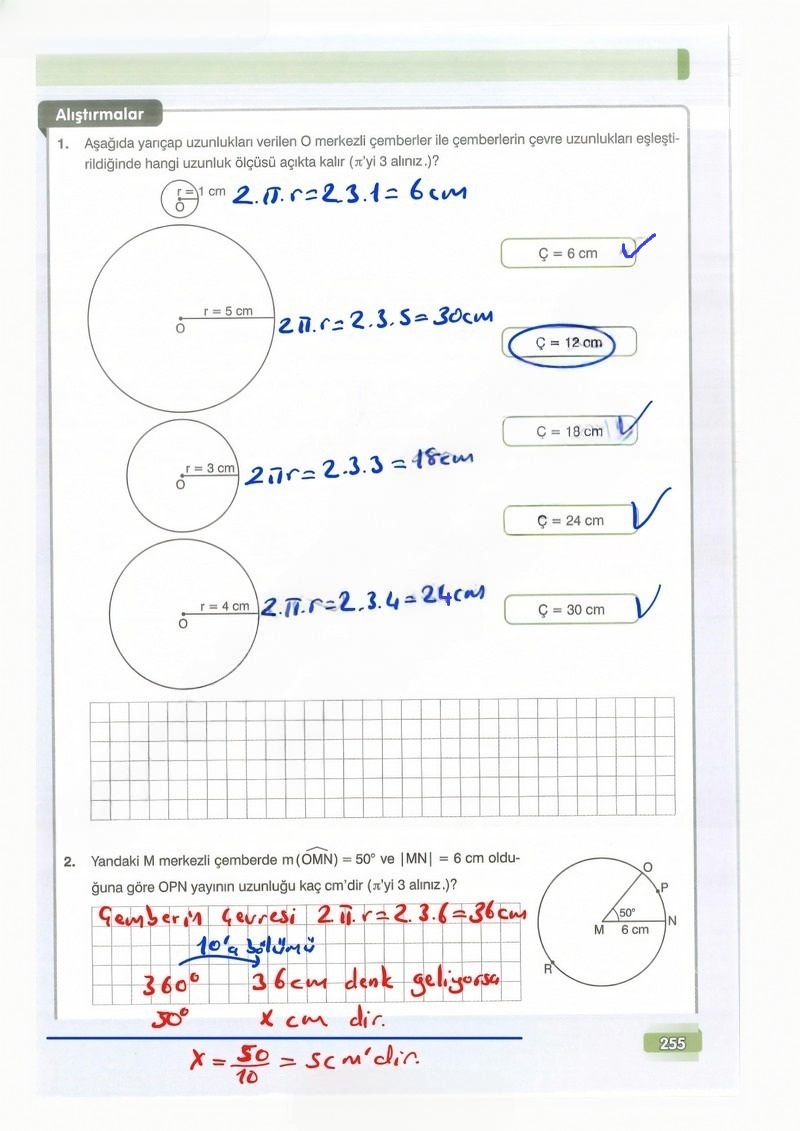 Alıştırmalar
1. Aşağıda yarıçap uzunlukları verilen O merkezli çemberler ile çemberlerin çevre uzunlukları eşleşti-
rildiğinde hangi uzunluk ölçüsü açıkta kalır (π'yi 3 alınız.)?
r = 1 cm 2.π.r=2.3.1= 6cm
O
Ç = 6 cm ✓
r = 5 cm 2π.r=2.3.5=30cm
O
Ç = 12 cm
Ç = 18 cm ✓
r = 3 cm 2πr=2.3.3=18cm
O
Ç = 24 cm ✓
r = 4 cm 2.π.r=2.3.4=24cm
O
Ç = 30 cm ✓
2. Yandaki M merkezli çemberde m(OMN) = 50° ve |MN| = 6 cm oldu-
ğuna göre OPN yayının uzunluğu kaç cm'dir (π'yi 3 alınız.)?
O
P
50°
M 6 cm N
R
Çemberin Çevresi 2π.r=2.3.6=36cm
10'a bölümü
360° 36cm denk geliyorsa
50° x cm dir.
x = 50/10 = 5cm'dir.
255